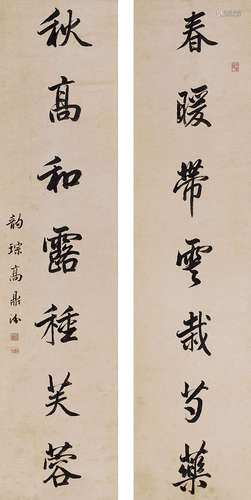 春暖帶雲栽芍藥
秋高和露種芙蓉
韵琮高鼎汾